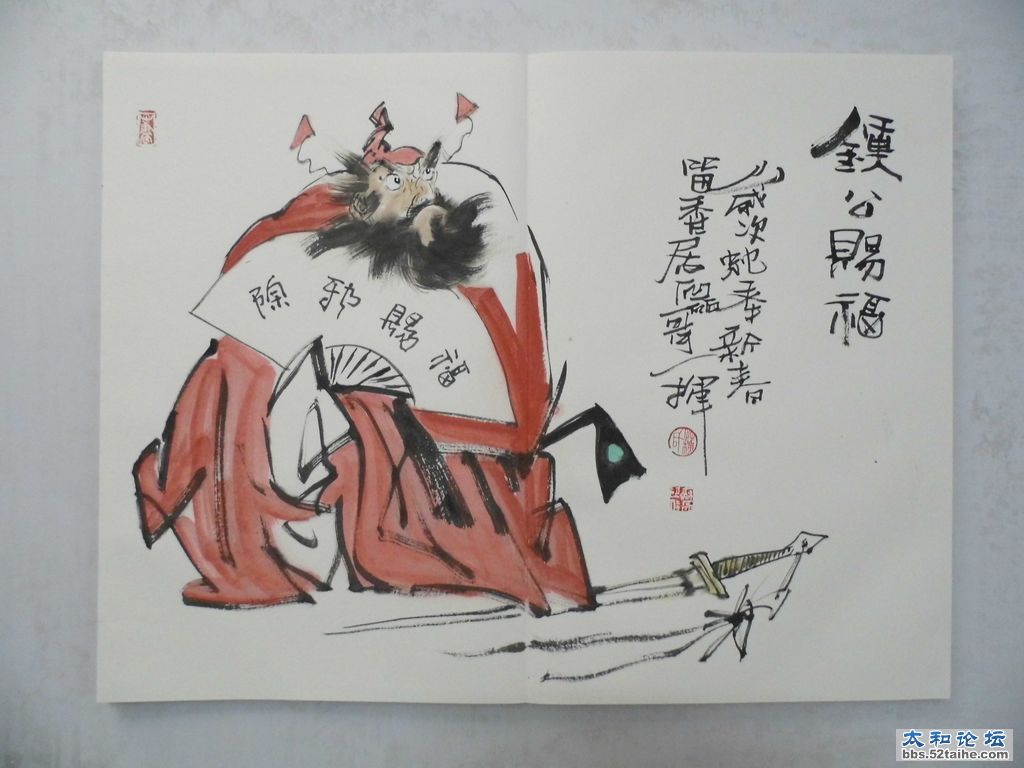 鍾公賜福
歲次蛇秊新春
留香居臨哥一揮
除邪賜福
太和论坛
bbs.52taihe.com